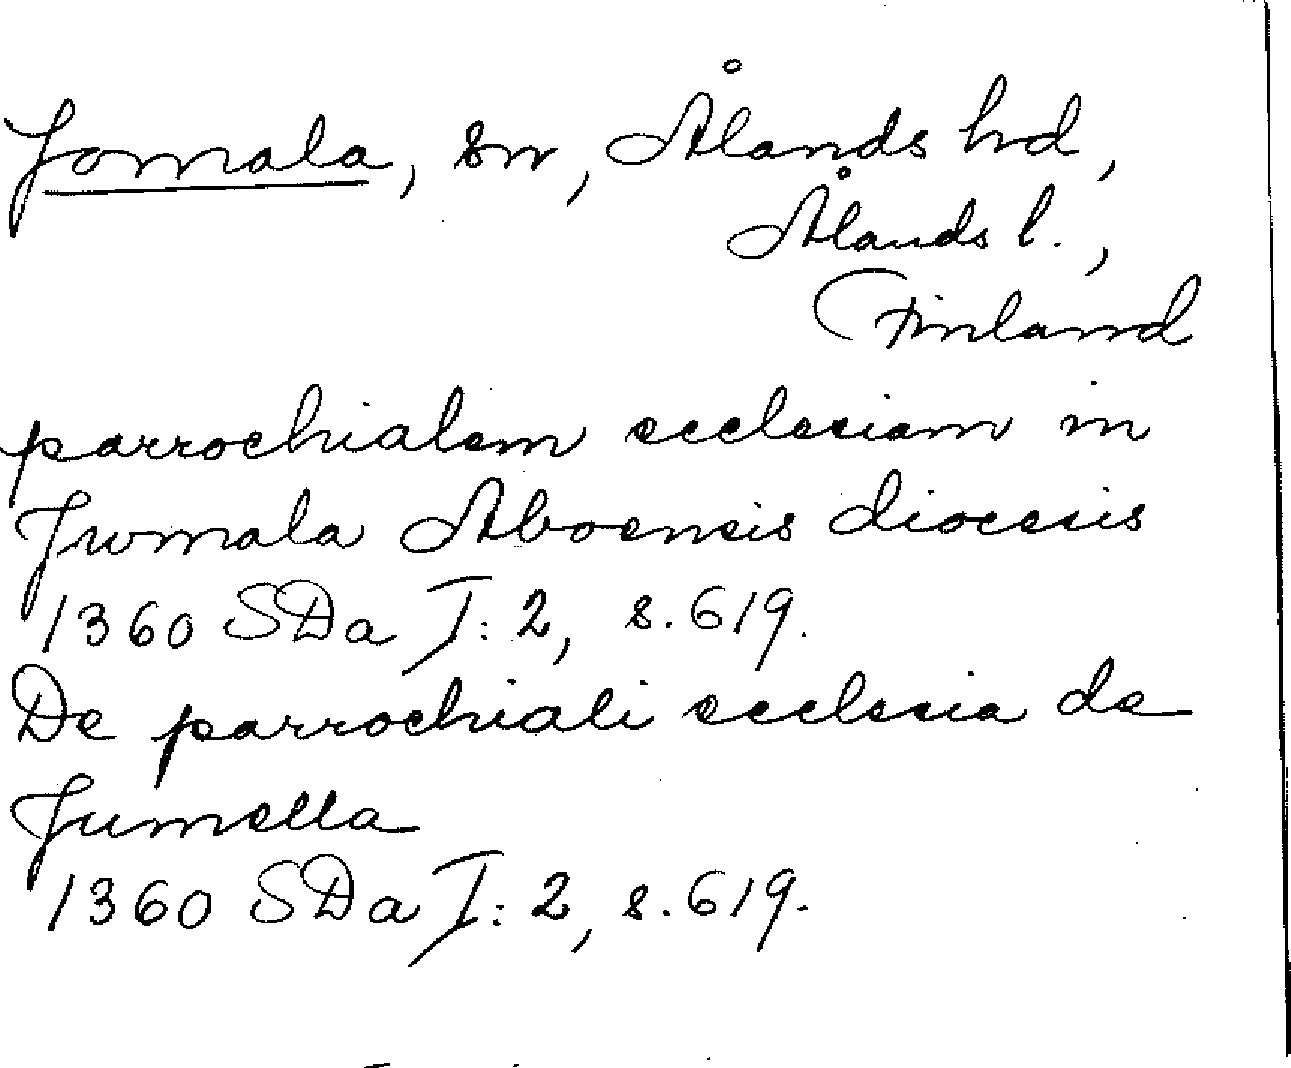 Jomala, sn, Ålands hd,
Ålands l.,
Finland
parrochialem ecclesiam in
Jwmala Aboensis diocesis
1360 SDa I:2, s. 619.
De parrochiali ecclesia de
Jumella
1360 SDa I:2, s. 619.